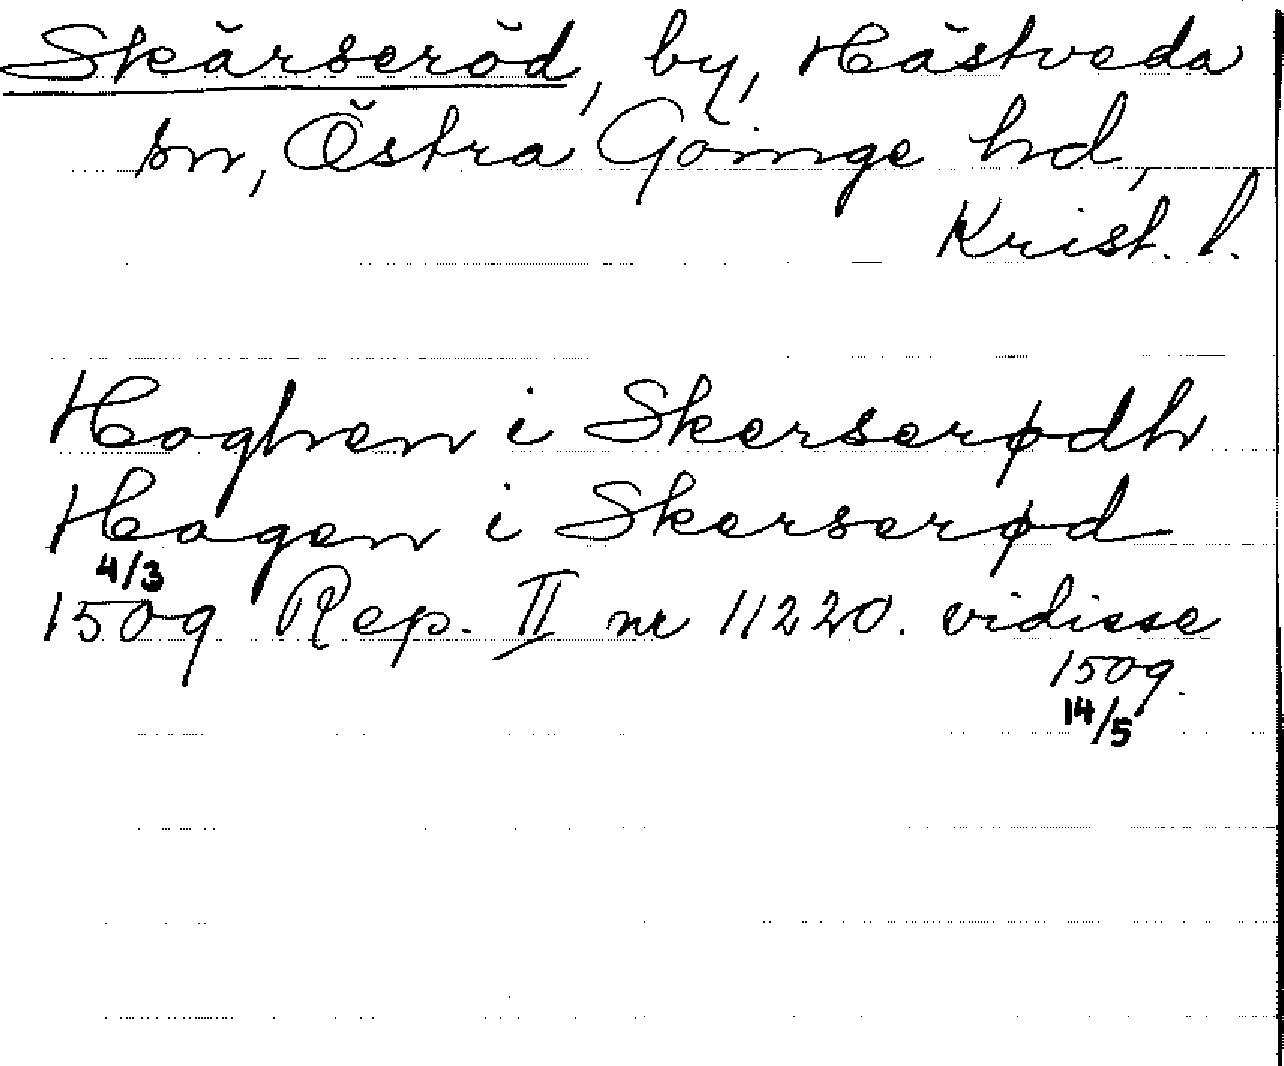 Skärseröd, by, Hästveda
sn, Östra Göinge hd,
Krist. l.
Haghen i Skerserødh
Hagen i Skerserød
4/3
1509 Rep. II nr 11220. vidisse
1509.
14/5